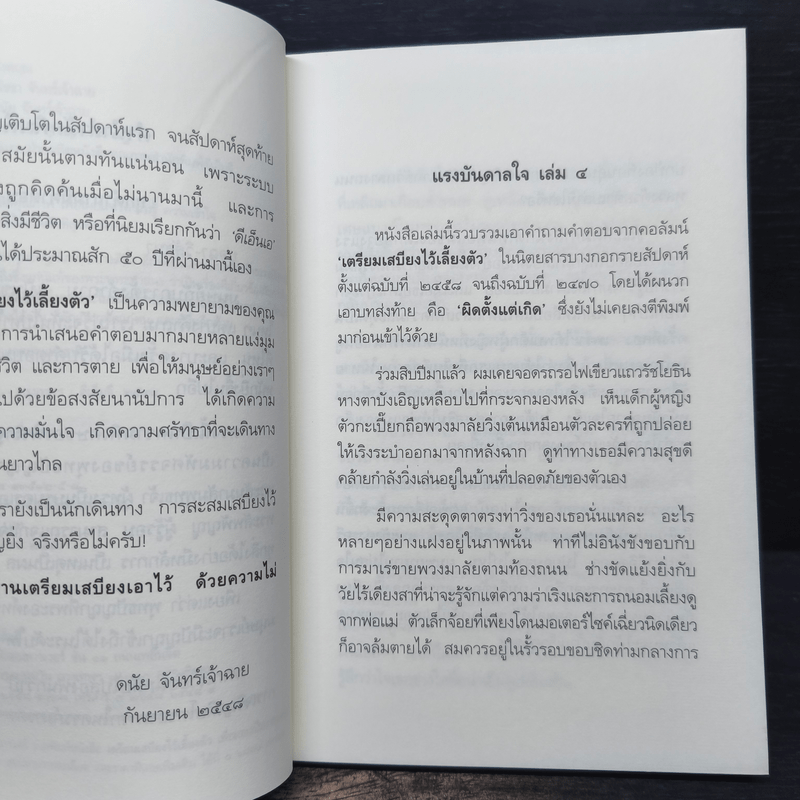 ญเติบโตในสัปดาห์แรก จนสัปดาห์สุดท้าย
สมัยนั้นตามทันแน่นอน เพราะระบบ
งถูกคิดค้นเมื่อไม่นานมานี้ และการ
สิ่งมีชีวิต หรือที่นิยมเรียกกันว่า ‘ดีเอ็นเอ’
ได้ประมาณสัก ๕๐ ปีที่ผ่านมานี้เอง
ยงไว้เลี้ยงตัว’ เป็นความพยายามของคุณ
การนำเสนอคำตอบมากมายหลายแง่มุม
ชีวิต และการตาย เพื่อให้มนุษย์อย่างเราๆ
ไปด้วยข้อสงสัยนานัปการ ได้เกิดความ
ความมั่นใจ เกิดความศรัทธาที่จะเดินทาง
นยาวไกล
รายังเป็นนักเดินทาง การสะสมเสบียงไว้
ญยิ่ง จริงหรือไม่ครับ!
านเตรียมเสบียงเอาไว้ ด้วยความไม่
ดนัย จันทร์เจ้าฉาย
กันยายน ๒๕๔๘
แรงบันดาลใจ เล่ม ๔
หนังสือเล่มนี้รวบรวมเอาคำถามคำตอบจากคอลัมน์
‘เตรียมเสบียงไว้เลี้ยงตัว’ ในนิตยสารบางกอกรายสัปดาห์
ตั้งแต่ฉบับที่ ๒๔๕๘ จนถึงฉบับที่ ๒๔๗๐ โดยได้ผนวก
เอาบทส่งท้าย คือ ‘ผิดตั้งแต่เกิด’ ซึ่งยังไม่เคยลงตีพิมพ์
มาก่อนเข้าไว้ด้วย
ร่วมสิบปีมาแล้ว ผมเคยจอดรถรอไฟเขียวแถวรัชโยธิน
หางตาบังเอิญเหลือบไปที่กระจกมองหลัง เห็นเด็กผู้หญิง
ตัวกะเปี๊ยกถือพวงมาลัยวิ่งเต้นเหมือนตัวละครที่ถูกปล่อย
ให้เริงระบำออกมาจากหลังฉาก ดูท่าทางเธอมีความสุขดี
คล้ายกำลังวิ่งเล่นอยู่ในบ้านที่ปลอดภัยของตัวเอง
มีความสะดุดตาตรงท่าวิ่งของเธอนั่นแหละ อะไร
หลายๆอย่างแฝงอยู่ในภาพนั้น ท่าทีไม่อินังขังขอบกับ
การมาเร่ขายพวงมาลัยตามท้องถนน ช่างขัดแย้งยิ่งกับ
วัยไร้เดียงสาที่น่าจะรู้จักแต่ความร่าเริงและการถนอมเลี้ยงดู
จากพ่อแม่ ตัวเล็กจ้อยที่เพียงโดนมอเตอร์ไซค์เฉี่ยวนิดเดียว
ก็อาจล้มตายได้ สมควรอยู่ในรั้วรอบขอบชิดท่ามกลางการ